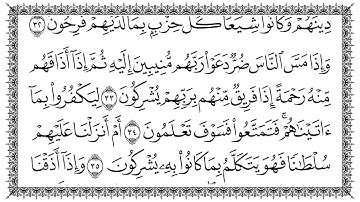 دِينَهُمْ وَكَانُوا۟ شِيَعًا كُلُّ حِزْبٍۭ بِمَا لَدَيْهِمْ فَرِحُونَ ٣٢
وَإِذَا مَسَّ ٱلنَّاسَ ضُرٌّ دَعَوْا۟ رَبَّهُم مُّنِيبِينَ إِلَيْهِ ثُمَّ إِذَآ أَذَاقَهُم
مِّنْهُ رَحْمَةً إِذَا فَرِيقٌ مِّنْهُم بِرَبِّهِمْ يُشْرِكُونَ ٣٣ لِيَكْفُرُوا۟ بِمَآ
ءَاتَيْنَٰهُمْ ۚ فَتَمَتَّعُوا۟ فَسَوْفَ تَعْلَمُونَ ٣٤ أَمْ أَنزَلْنَا عَلَيْهِمْ
سُلْطَٰنًا فَهُوَ يَتَكَلَّمُ بِمَا كَانُوا۟ بِهِۦ يُشْرِكُونَ ٣٥ وَإِذَآ أَذَقْنَا